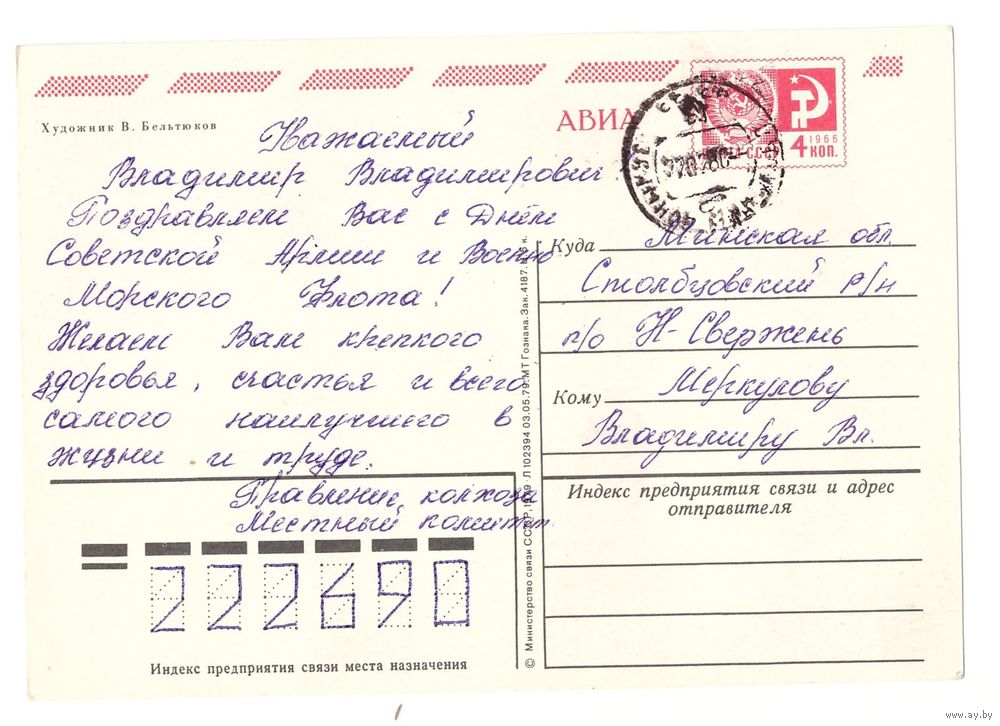 Художник В. Бельтюков
АВИА
1966
4 КОП.
Уважаемый
Владимир Владимирович!
Поздравляем Вас с Днём
Советской Армии и Военно
Морского Флота!
Желаем Вам крепкого
здоровья, счастья и всего
самого наилучшего в
жизни и труде.
Правление колхоза
Местный комитет.
Куда Минская обл.
Столбцовский р/н
п/о Н-Свержень
Кому Меркулову
Владимиру Вл.
Индекс предприятия связи и адрес
отправителя
222690
Индекс предприятия связи места назначения
© Министерство связи СССР, 1979 Л 102394 03.05.79. МТ Гознака. Зак. 4187.
www.ay.by